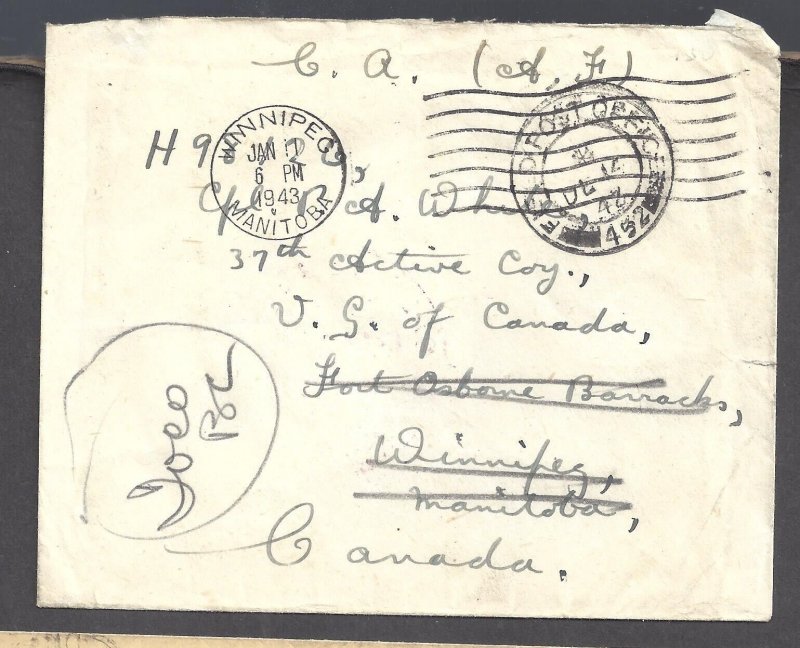 C. A. (A. F)
WINNIPEG
JAN 11
6 PM
1943
MANITOBA
FIELD POST OFFICE
DE 14
42
452
H
Cpl R. A. White,
37th Active Coy.,
V. G. of Canada,
Fort Osborne Barracks,
Winnipeg,
Manitoba,
Canada.